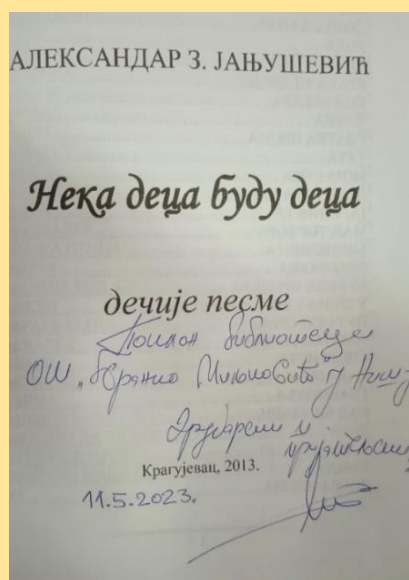 АЛЕКСАНДАР З. ЈАЊУШЕВИЋ
Нека деца буду деца
дечије песме
Поклон библиотеци
ОШ „Бранко Миљковић" у Нишу
Другарски и
пријатељски
Крагујевац, 2013.
11.5.2023.